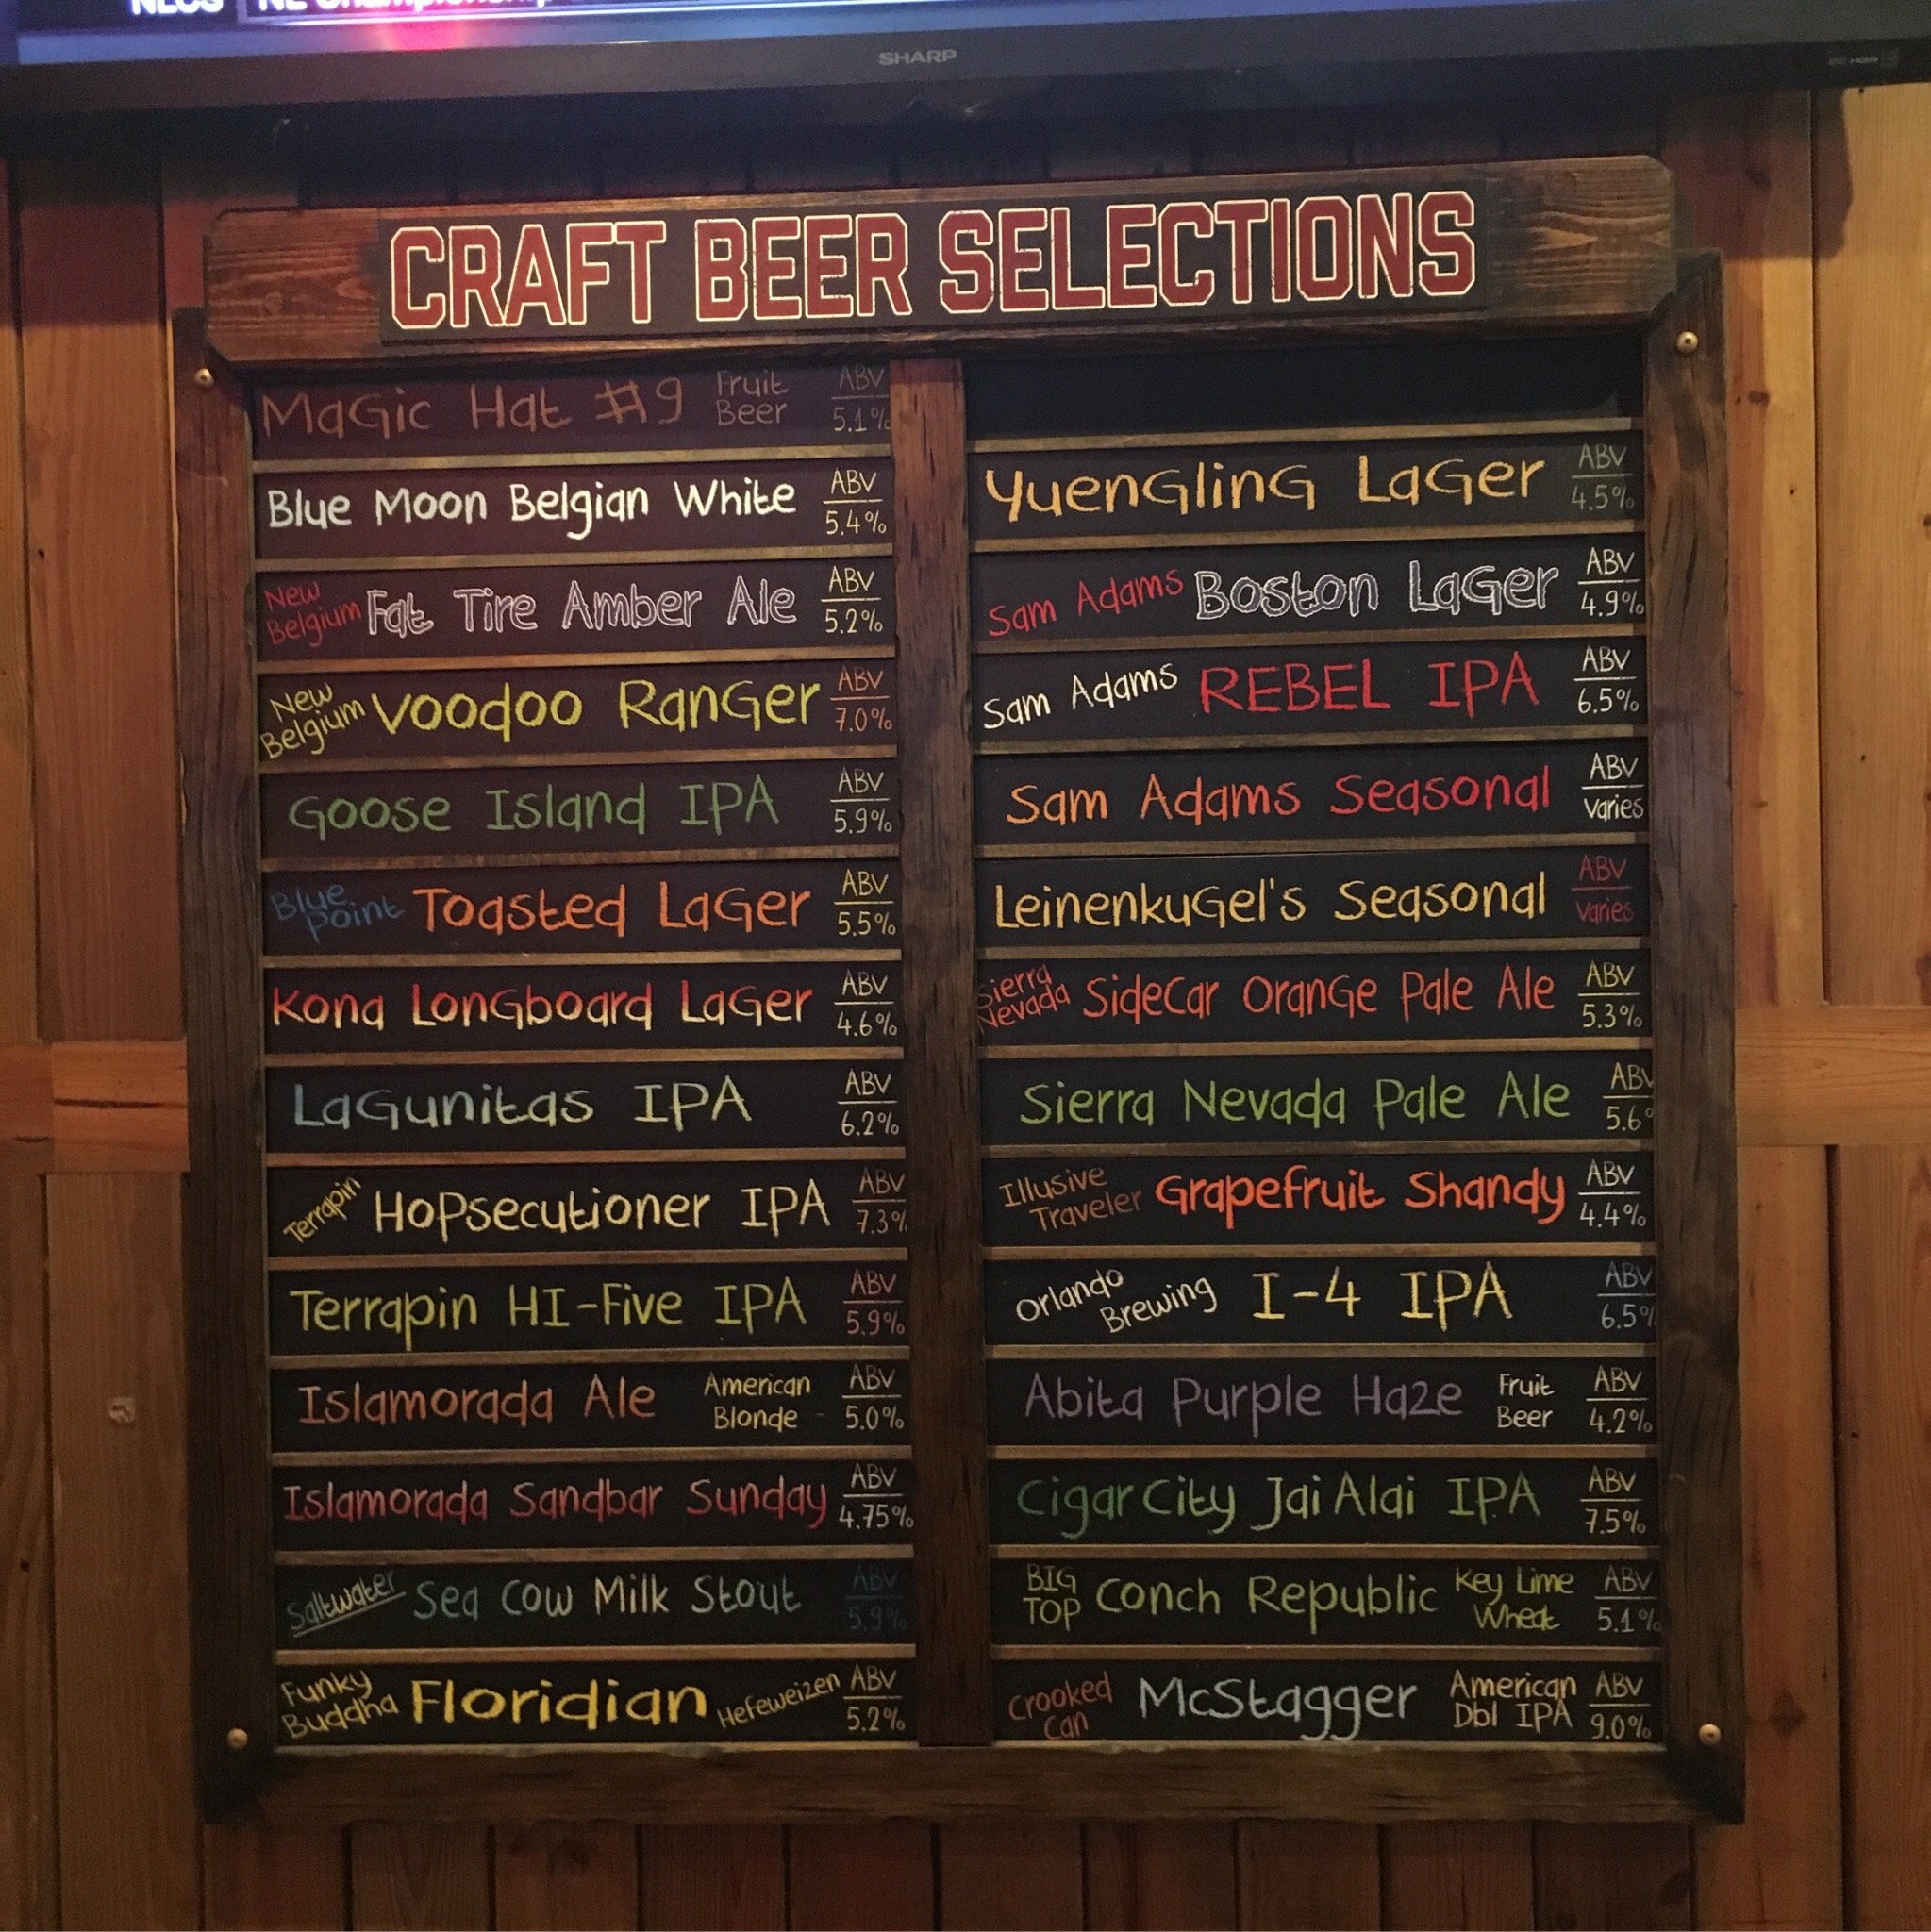 NLCS
SHARP
CRAFT BEER SELECTIONS
Magic Hat #9 Fruit Beer ABV 5.1%
Blue Moon Belgian White ABV 5.4%
New Belgium Fat Tire Amber Ale ABV 5.2%
New Belgium Voodoo Ranger ABV 7.0%
Goose Island IPA ABV 5.9%
Blue Point Toasted Lager ABV 5.5%
Kona Longboard Lager ABV 4.6%
Lagunitas IPA ABV 6.2%
Terrapin Hopsecutioner IPA ABV 7.3%
Terrapin HI-Five IPA ABV 5.9%
Islamorada Ale American Blonde ABV 5.0%
Islamorada Sandbar Sunday ABV 4.75%
Saltwater Sea Cow Milk Stout ABV 5.9%
Funky Buddha Floridian Hefeweizen ABV 5.2%
Yuengling Lager ABV 4.5%
Sam Adams Boston Lager ABV 4.9%
Sam Adams REBEL IPA ABV 6.5%
Sam Adams Seasonal ABV varies
Leinenkugel's Seasonal ABV varies
Sierra Nevada Sidecar Orange Pale Ale ABV 5.3%
Sierra Nevada Pale Ale ABV 5.6%
Illusive Traveler Grapefruit Shandy ABV 4.4%
Orlando Brewing I-4 IPA ABV 6.5%
Abita Purple Haze Fruit Beer ABV 4.2%
Cigar City Jai Alai IPA ABV 7.5%
BIG TOP Conch Republic Key Lime Wheat ABV 5.1%
Crooked Can McStagger American Dbl IPA ABV 9.0%